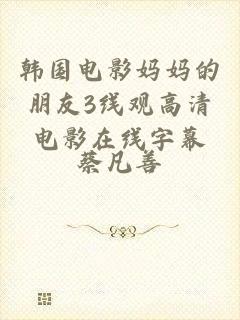 韩国电影妈妈的
朋友3线观高清
电影在线字幕
蔡凡善